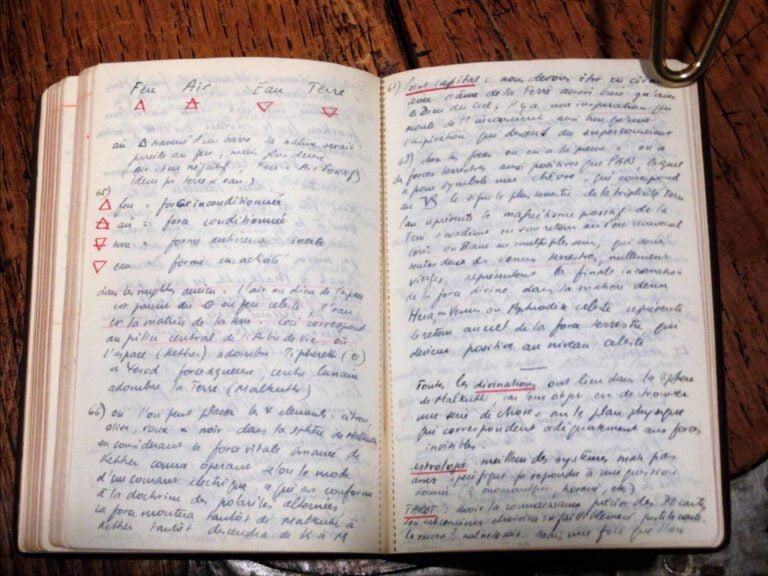 Feu Air Eau Terre
au △ travers d'un verre la nature serait
pareille au feu, mais plus dense
(Air = Feu négatif, Feu = Air
idem pr terre & eau)
65)
△ feu = force inconditionnée
air = force conditionnée
terre = forme entièrement inerte
▽ eau forme en activité
dans les mythes anciens l'air ou dieu de l'espace
est parent du ⊙ ou feu céleste, l'eau
est la matrice de la terre. Ceci correspond
au pilier central de l'Arbre de Vie où
l'espace (Kether) adombre Tiphereth (⊙)
& Yesod force aqueuse, centre lunaire
adombre la Terre (Malkuth)
66) où l'on peut placer les 4 éléments: citron,
olive, roux & noir dans la sphère de Malkuth
en considérant la force vitale émanée de
Kether comme opérant selon le mode
d'un courant électrique, ce qui est conforme
à la doctrine des polarités alternées
la force montera tantôt de Malkuth à
Kether tantôt descendra de K à M
63) Point capital: nous devons être en
avec l'âme de la Terre aussi bien qu'avec
le Dieu du Ciel; il y a une inspiration qui
monte de l'inconscient aussi bien qu'une
inspiration qui descend du superconscient
63) dans les
des forces terrestres aussi positives que PAN lequel
a pour symbole une chèvre, qui correspond
au ♑ le signe le plus terrestre de la triplicité Terre
représente le magnétisme positif de la
Terre en son retour au
Cérès ou Diane aux multiples seins, qui sont
toutes deux des Vénus terrestres, nullement
vierges, représentent la finale incarnation
de la force divine dans la matière dense
Hera ou Vénus ou Aphrodite céleste représente
le retour de la force terrestre qui
devient positive au niveau céleste
Toutes les divinations ont lieu dans la sphère
de Malkuth, car leur objet est de trouver
une série de choses sur le plan physique
qui correspondent adéquatement aux forces
invisibles.
astrologie meilleur des systèmes mais pas
assez spécifique pr répondre à une question
donnée (géomantique, horaire, etc)
TAROT: avoir la connaissance précise des 78 cartes
mais une fois que l'on